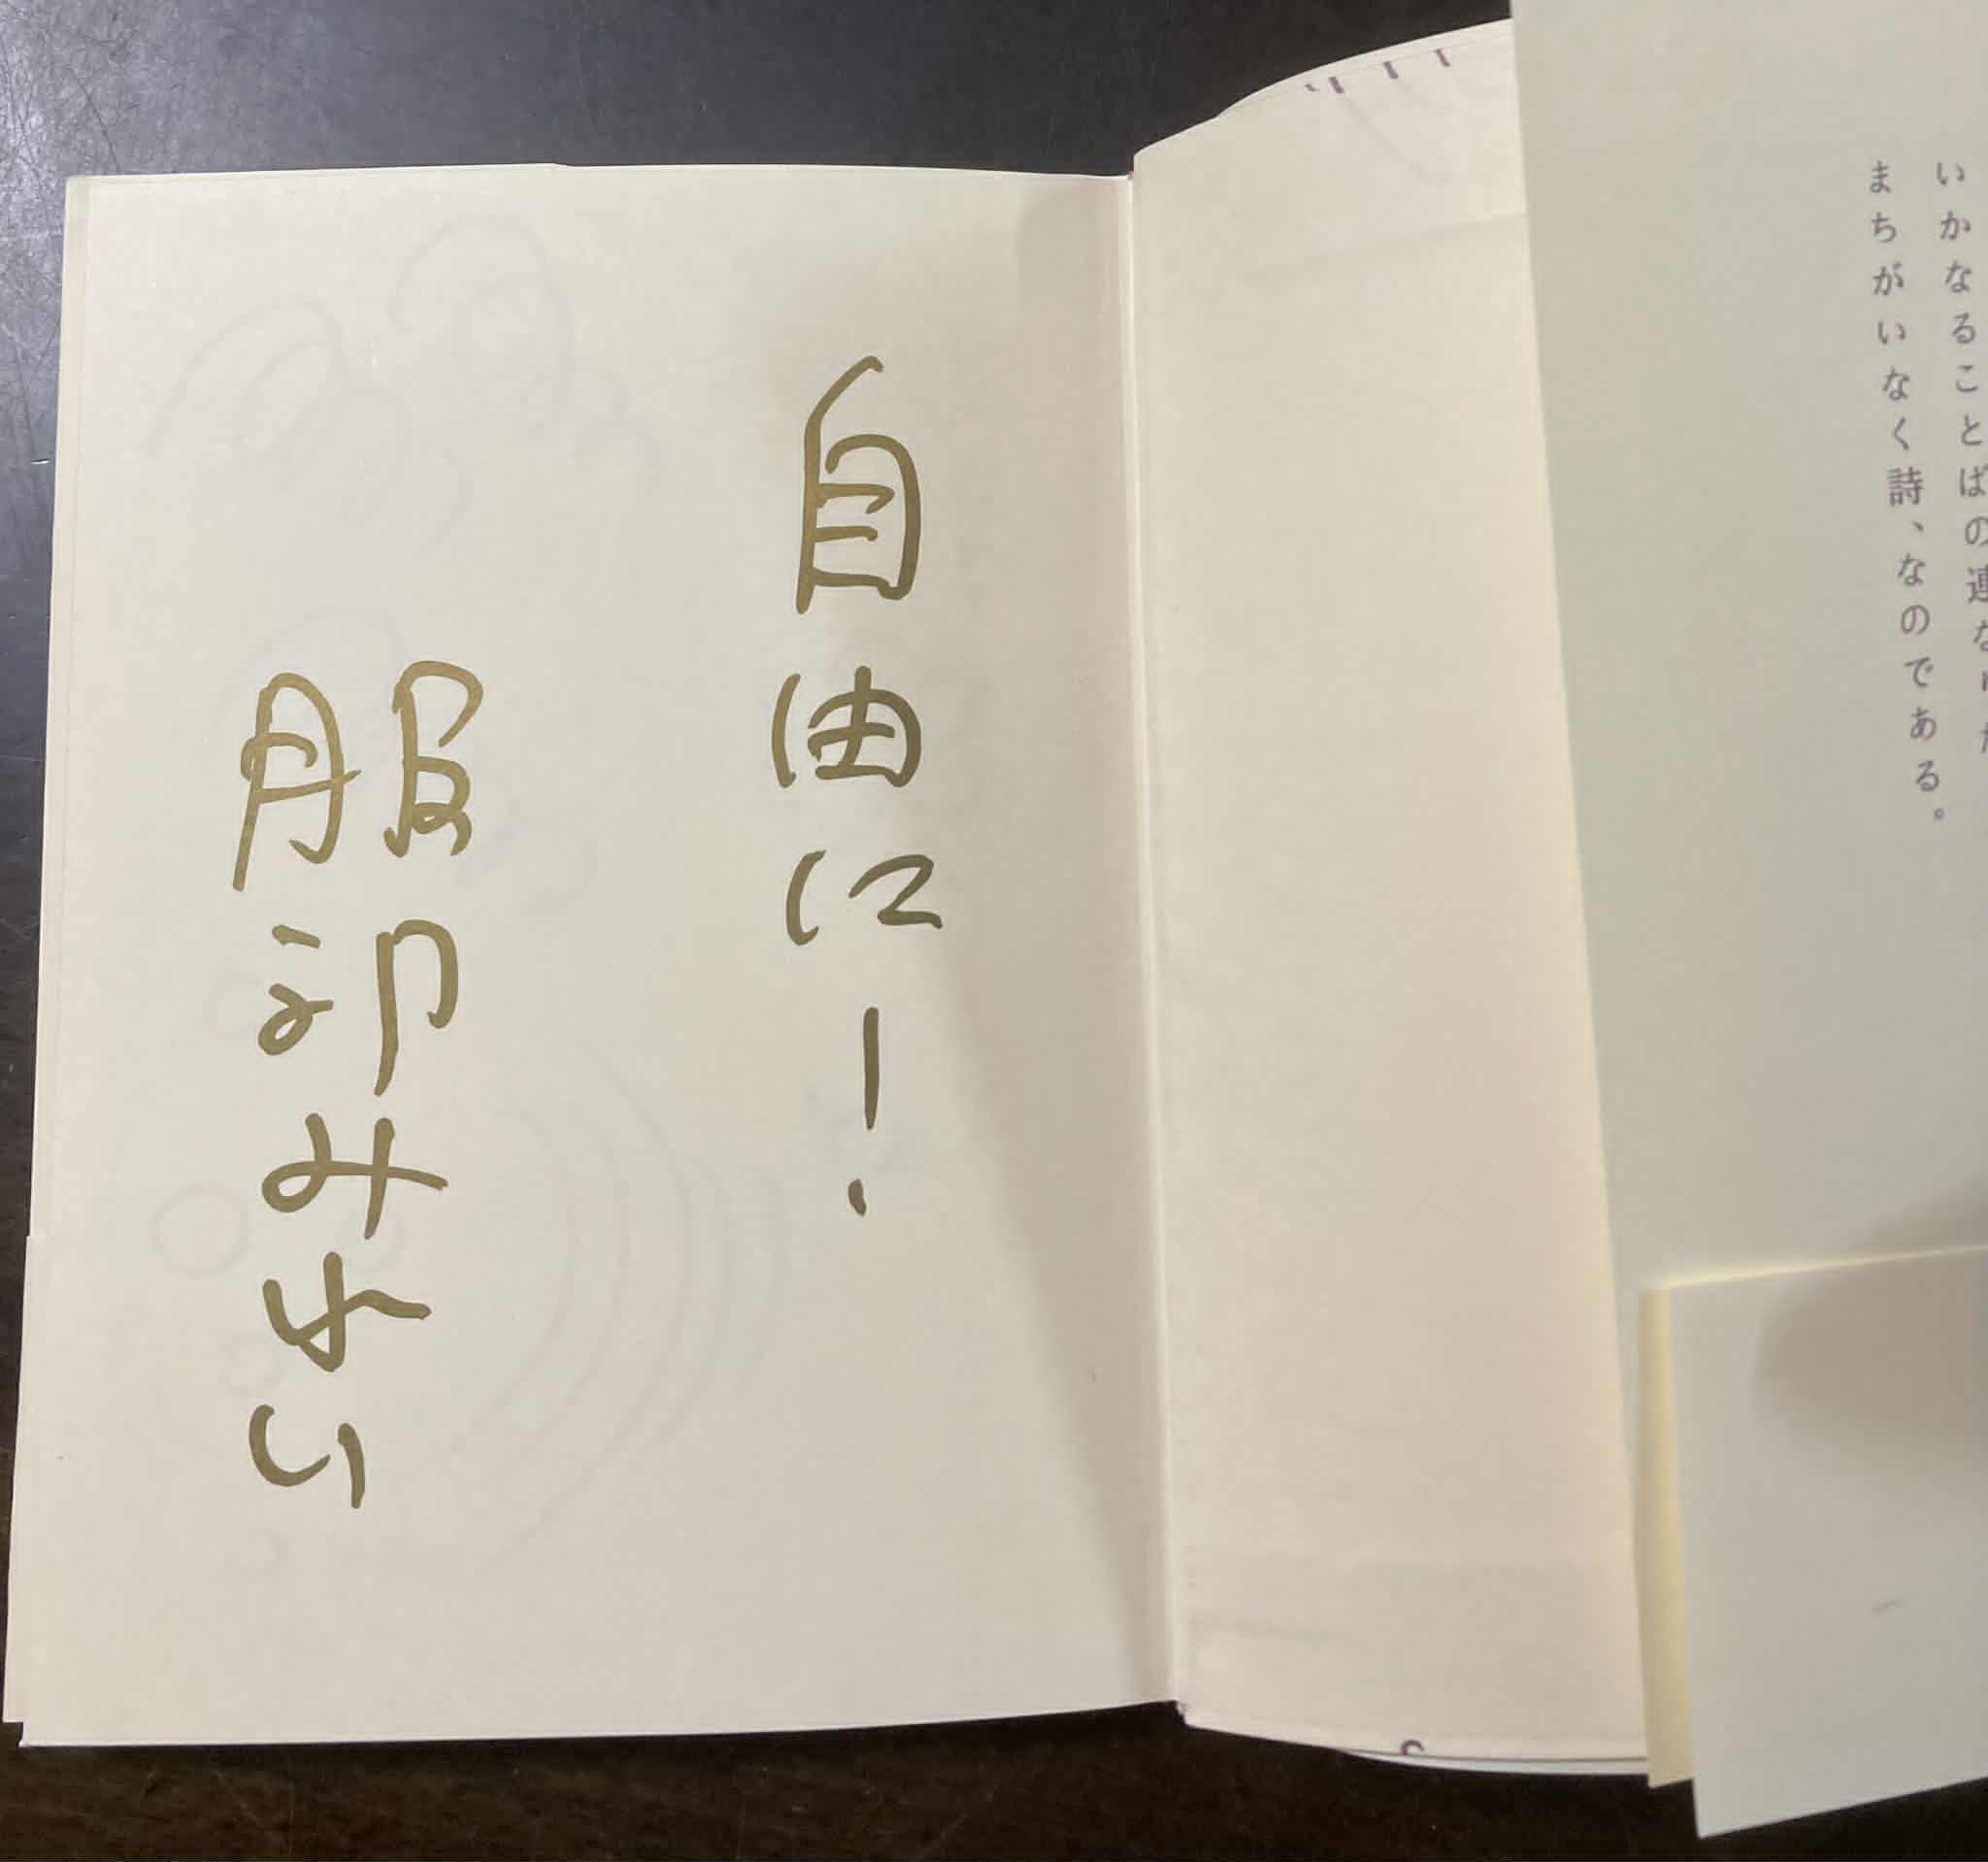 いかなることばの連な
まちがいなく詩、なのである。
自由に!
服部みれい